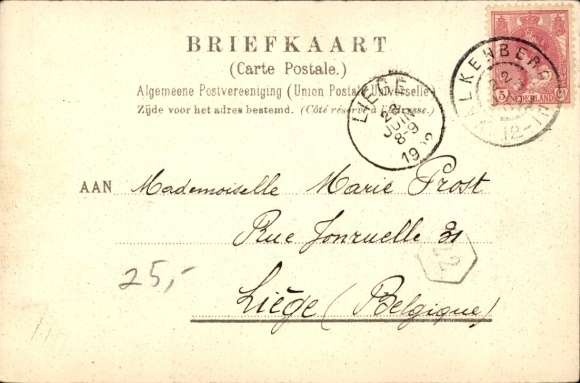 BRIEFKAART
(Carte Postale.)
Algemeene Postvereeniging (Union Postale Universelle)
Zijde voor het adres bestemd. (Côté réservé à l'adresse.)
LIEGE
28
JUIN
8-9
19
VALKENBERG
12-1N
5
NEDERLAND
AAN Mademoiselle Marie Prost
Rue Jonruelle 31
Liège (Belgique)
25,-